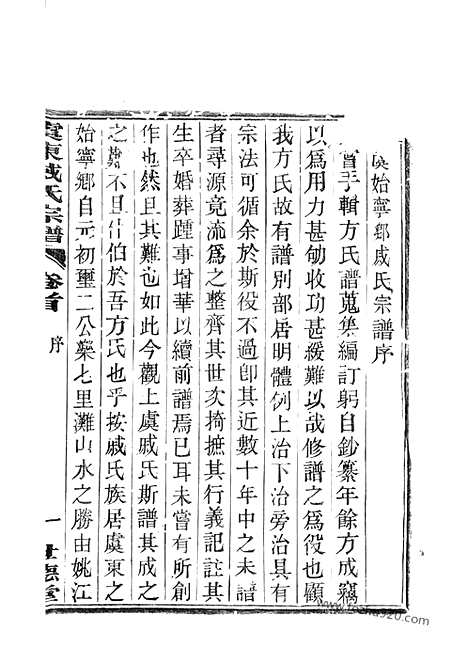 虞始寧鄉戚氏宗譜序
嘗手輯方氏譜蒐集編訂躬自鈔纂年餘方成竊
以爲用力甚劬收功甚緩難以哉修譜之爲役也顧
我方氏故有譜別部居明體例上治下治旁治具有
宗法可循余於斯役不過卽其近數十年中之未譜
者尋源竟流爲之整齊其世次掎摭其行義記註其
生卒婚葬踵事增華以續前譜焉已耳未嘗有所創
作也然且其難也如此今觀上虞戚氏斯譜其成之
之難不且什伯於吾方氏也乎按戚氏族居虞東之
始寧鄉自元初璽二公樂七里灘山水之勝由姚江
虞東戚氏宗譜 卷首 序 一 世德堂